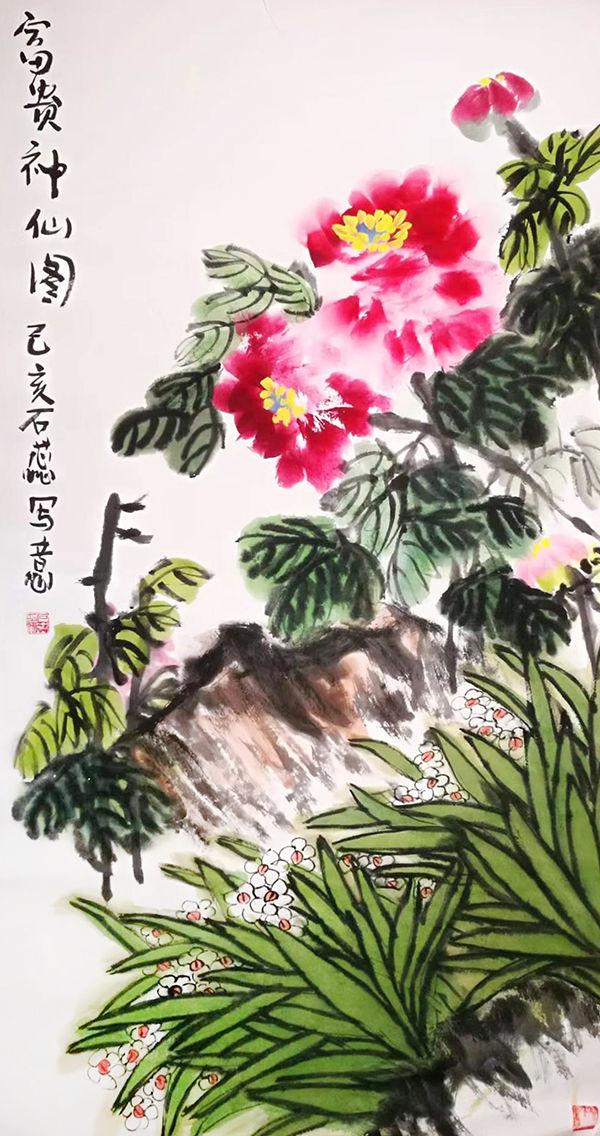 富貴神仙图己亥石蕊写意